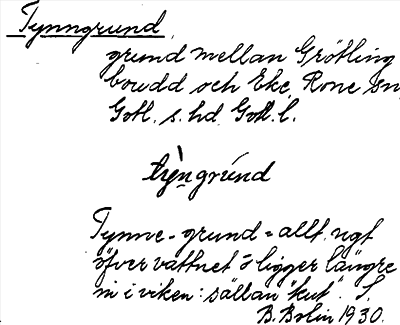 Tynngrund.
grund mellan Grötling
bovdd och Eke, Rone sn,
Gotl. s. hd. Gotl. l.
tỳngrúnd
Tynne-grund = allt. ngt
öfver vattnet o ligger längre
in i viken: sällan "kut". S.
B. Bolin 1930.